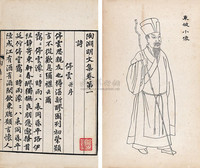 東坡小像
陶淵明文集卷第一
詩
停雲并序
停雲思親友也罇湛新醪園列初榮願
言不從歎息彌襟
靄靄停雲濛濛時雨八表同昏平路伊
阻靜寄東軒春醪獨撫良朋悠邈搔首
延佇停雲靄靄時雨濛濛八表同昏平
陸成江有酒有酒閒飲東窗願言懷人